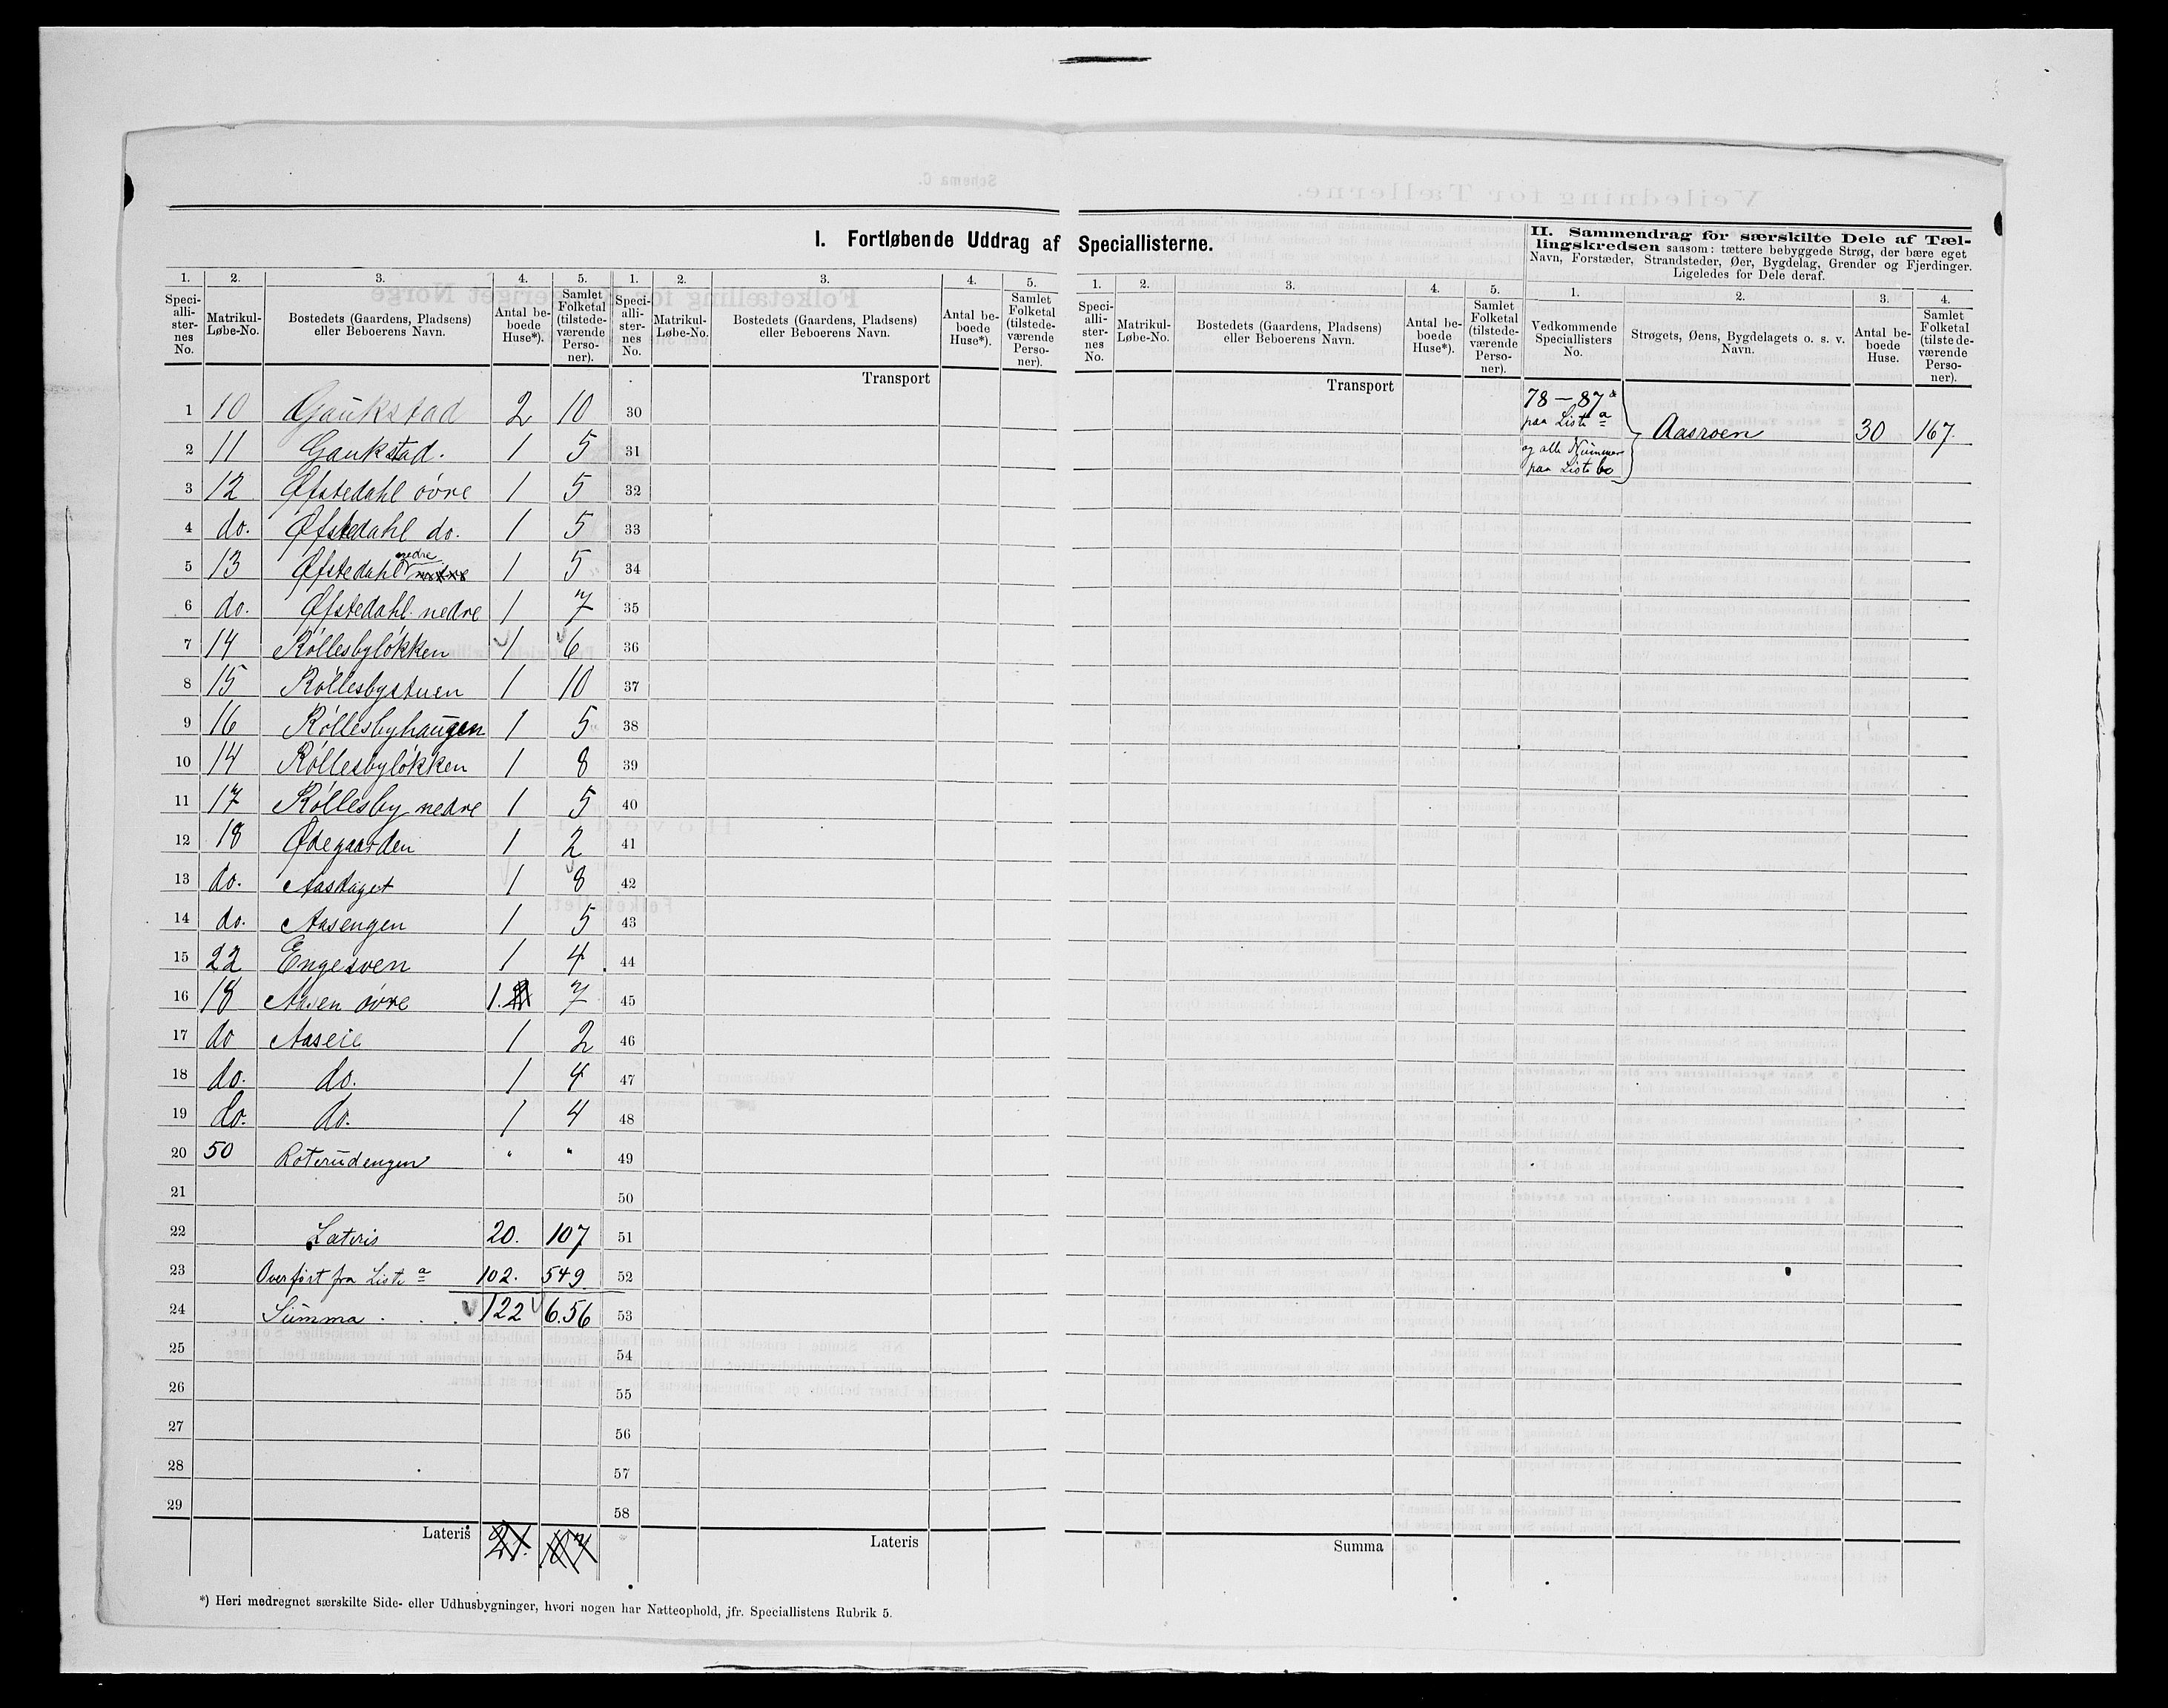 I. Fortløbende Uddrag af Speciallisterne.
II. Sammendrag for særskilte Dele af Tæl-
lingskredsen saasom: tættere bebyggede Strøg, der bære eget
Navn, Forstæder, Strandsteder, Øer, Bygdelag, Grender og Fjerdinger.
Ligeledes for Dele deraf.
1. 2. 3. 4. 5. 1. 2. 3. 4. 5. 1. 2. 3. 4. 5. 1. 2. 3. 4.
Speci-alli-ster-nes No. Matrikul-Løbe-No. Bostedets (Gaardens, Pladsens) eller Beboerens Navn. Antal be-boede Huse*). Samlet Folketal (tilstede-værende Perso-ner).
Speci-alli-ster-nes No. Matrikul-Løbe-No. Bostedets (Gaardens, Pladsens) eller Beboerens Navn. Antal be-boede Huse*). Samlet Folketal (tilstede-værende Perso-ner).
Speci-alli-ster-nes No. Matrikul-Løbe-No. Bostedets (Gaardens, Pladsens) eller Beboerens Navn. Antal be-boede Huse*). Samlet Folketal (tilstede-værende Perso-ner).
Vedkommende Speciallisters No. Strøgets, Øens, Bygdelagets o. s. v. Navn. Antal be-boede Huse. Samlet Folketal (tilstede-værende Perso-ner).
Transport Transport
1 10 Gaukstad 2 10 30
2 11 Gaukstad. 1 5 31
3 12 Øfstedahl øvre 1 5 32
4 do. Øfstedahl do. 1 5 33
5 13 Øfstedahl nedre 1 5 34
6 do. Øfstedahl nedre 1 7 35
7 14 Røllesbyløkken 1 6 36
8 15 Røllesbystuen 1 10 37
9 16 Røllesbyhaugen 1 5 38
10 14 Røllesbyløkken 1 8 39
11 17 Røllesby nedre 1 5 40
12 18 Ødegaarden 1 2 41
13 do. 1 8 42
14 do. Aasengen 1 5 43
15 22 Engesven 1 4 44
16 18 Aasen øvre 1. 7 45
17 do Aaseie 1 2 46
18 do. do. 1 4 47
19 do. do. 1 4 48
20 50 Roterudengen " " 49
21 50
22 Lateris 20. 107 51
23 Overført fra Liste a 102. 549 52
24 Summa . . . 122 6.56 53
25 54
26 55
27 56
28 57
29 58
78 – 87
paa Liste a
og alle Nummer
paa Liste b
Aasroen 30 167.
Lateris 21. Lateris Summa
*) Heri medregnet særskilte Side- eller Udhusbygninger, hvori nogen har Natteophold, jfr. Speciallistens Rubrik 5.